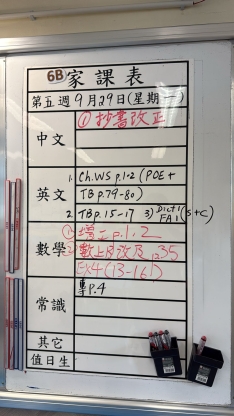 6B 家課表
第五週 9月29日(星期一)
中文 ① 抄書改正
英文 1. Ch.WS p.1-2 (POE +
TB p.79-80)
2. TB p.15-17 3) Dict 1 (S+C)
FA 1
數學 ① 增工 p.1, 2
② 數上 P.35
EX4 (13-16)
常識 專 p.4
其它
值日生